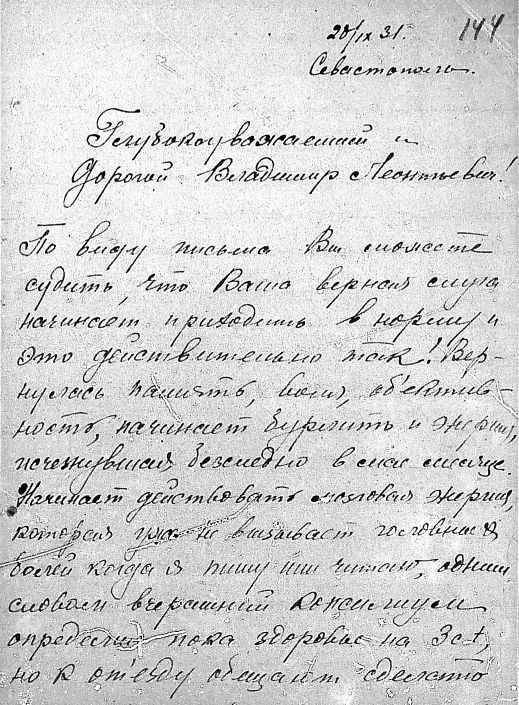 20/IX 31. 144
Севастополь.
Глубокоуважаемый и
Дорогой Владимир Леонтьевич!
По виду письма Вы сможете
судить, что Ваша верная слуга
начинает приходить в норму и
это действительно так! Вер-
нулась память, воля, объектив-
ность, начинает бурлить и энергия,
исчезнувшая бесследно в мае месяце.
Начинает действовать мозговая энергия,
которая уже не вызывает головных
болей когда я пишу или читаю, одним
словом вчерашний консилиум
определил пока здоровье на 3ct,
но к отъезду обещают сделать